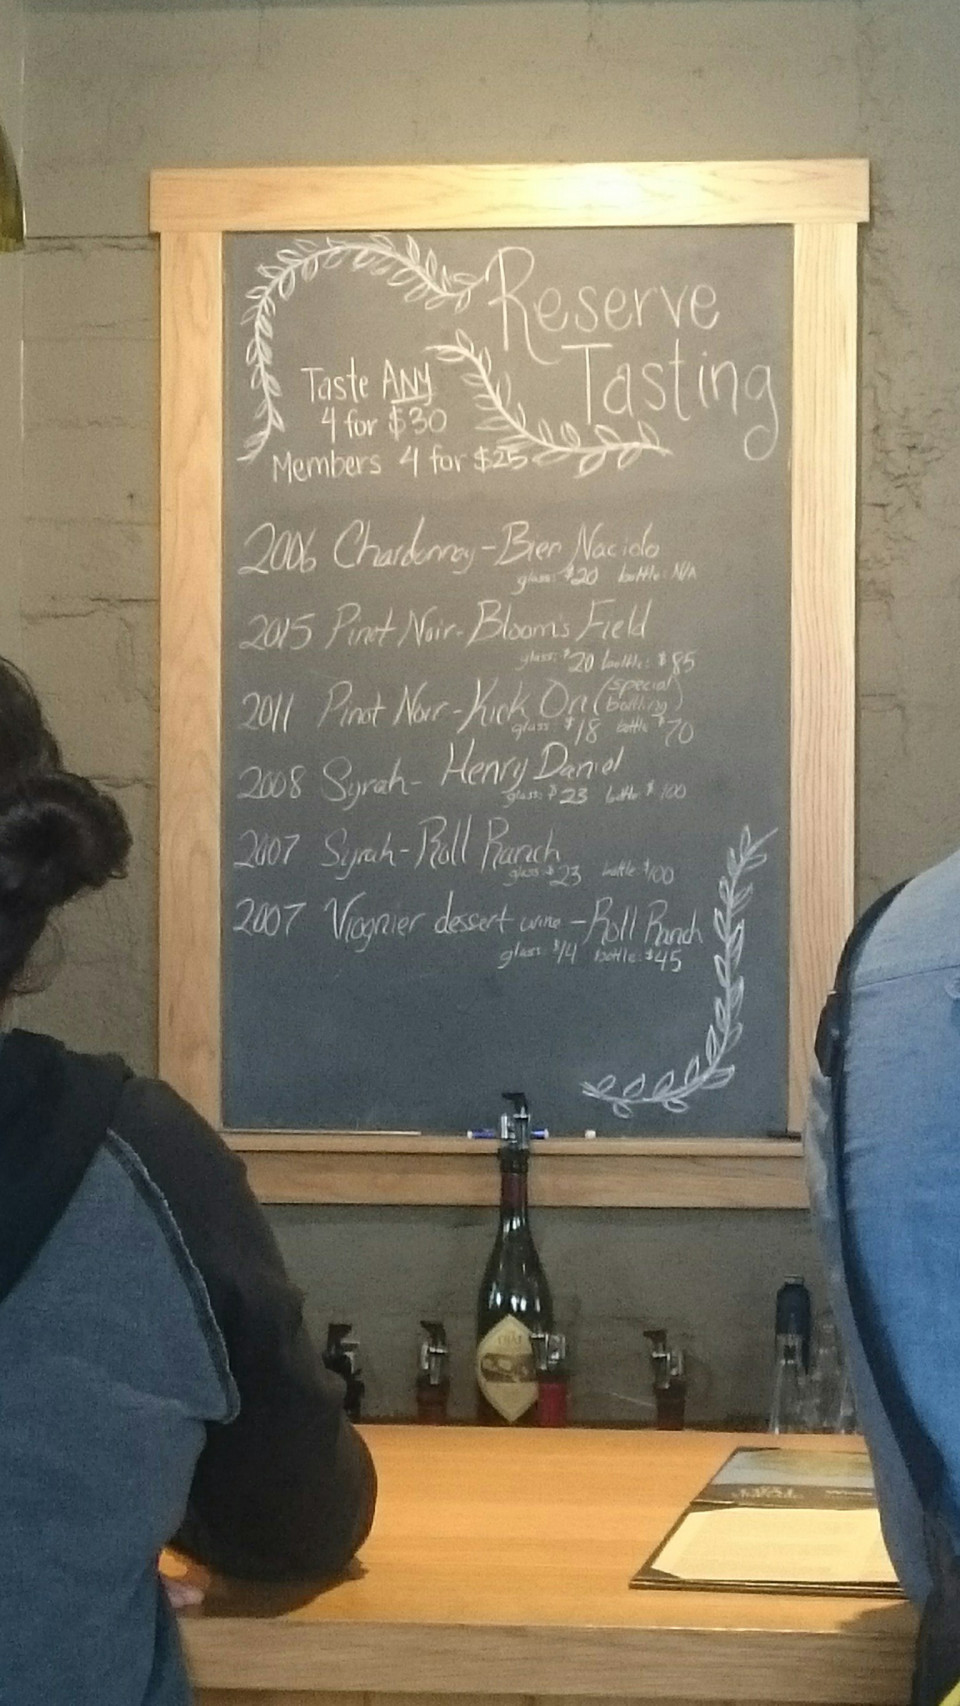 Reserve
Tasting
Taste ANY
4 for $30
Members 4 for $25
2006 Chardonnay - Bien Nacido
glass: $20 bottle: N/A
2015 Pinot Noir - Bloom's Field
glass: $20 bottle: $85
2011 Pinot Noir - Kick On (special bottling)
glass: $18 bottle $70
2008 Syrah - Henry Daniel
glass: $23 bottle $100
2007 Syrah - Roll Ranch
glass: $23 bottle $100
2007 Viognier dessert wine - Roll Ranch
glass: $14 bottle: $45